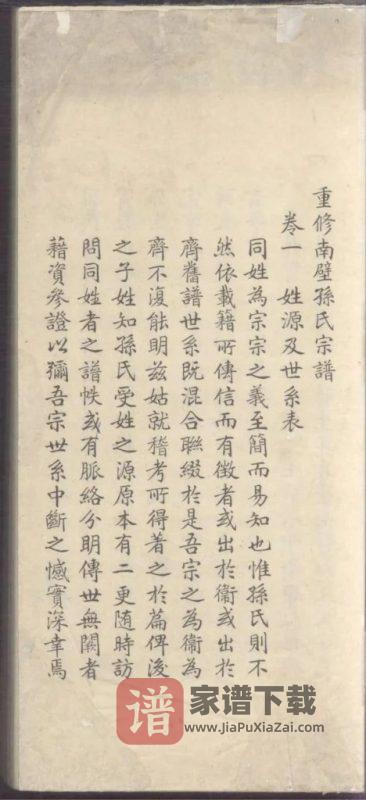 重修南壁孫氏宗譜
卷一 姓源及世系表
同姓為宗宗之義至簡而易知也惟孫氏則不
然依載籍所傳信而有徵者或出於衞或出於
齊舊譜世系既混合聯綴於是吾宗之為衞為
齊不復能明茲姑就稽考所得著之於篇俾後
之子姓知孫氏受姓之源原本有二更随時訪
問同姓者之譜帙或有脈絡分明傳世無闕者
藉資參證以彌吾宗世系中斷之憾實深幸焉
譜 家谱下载
www.JiaPuXiaZai.com